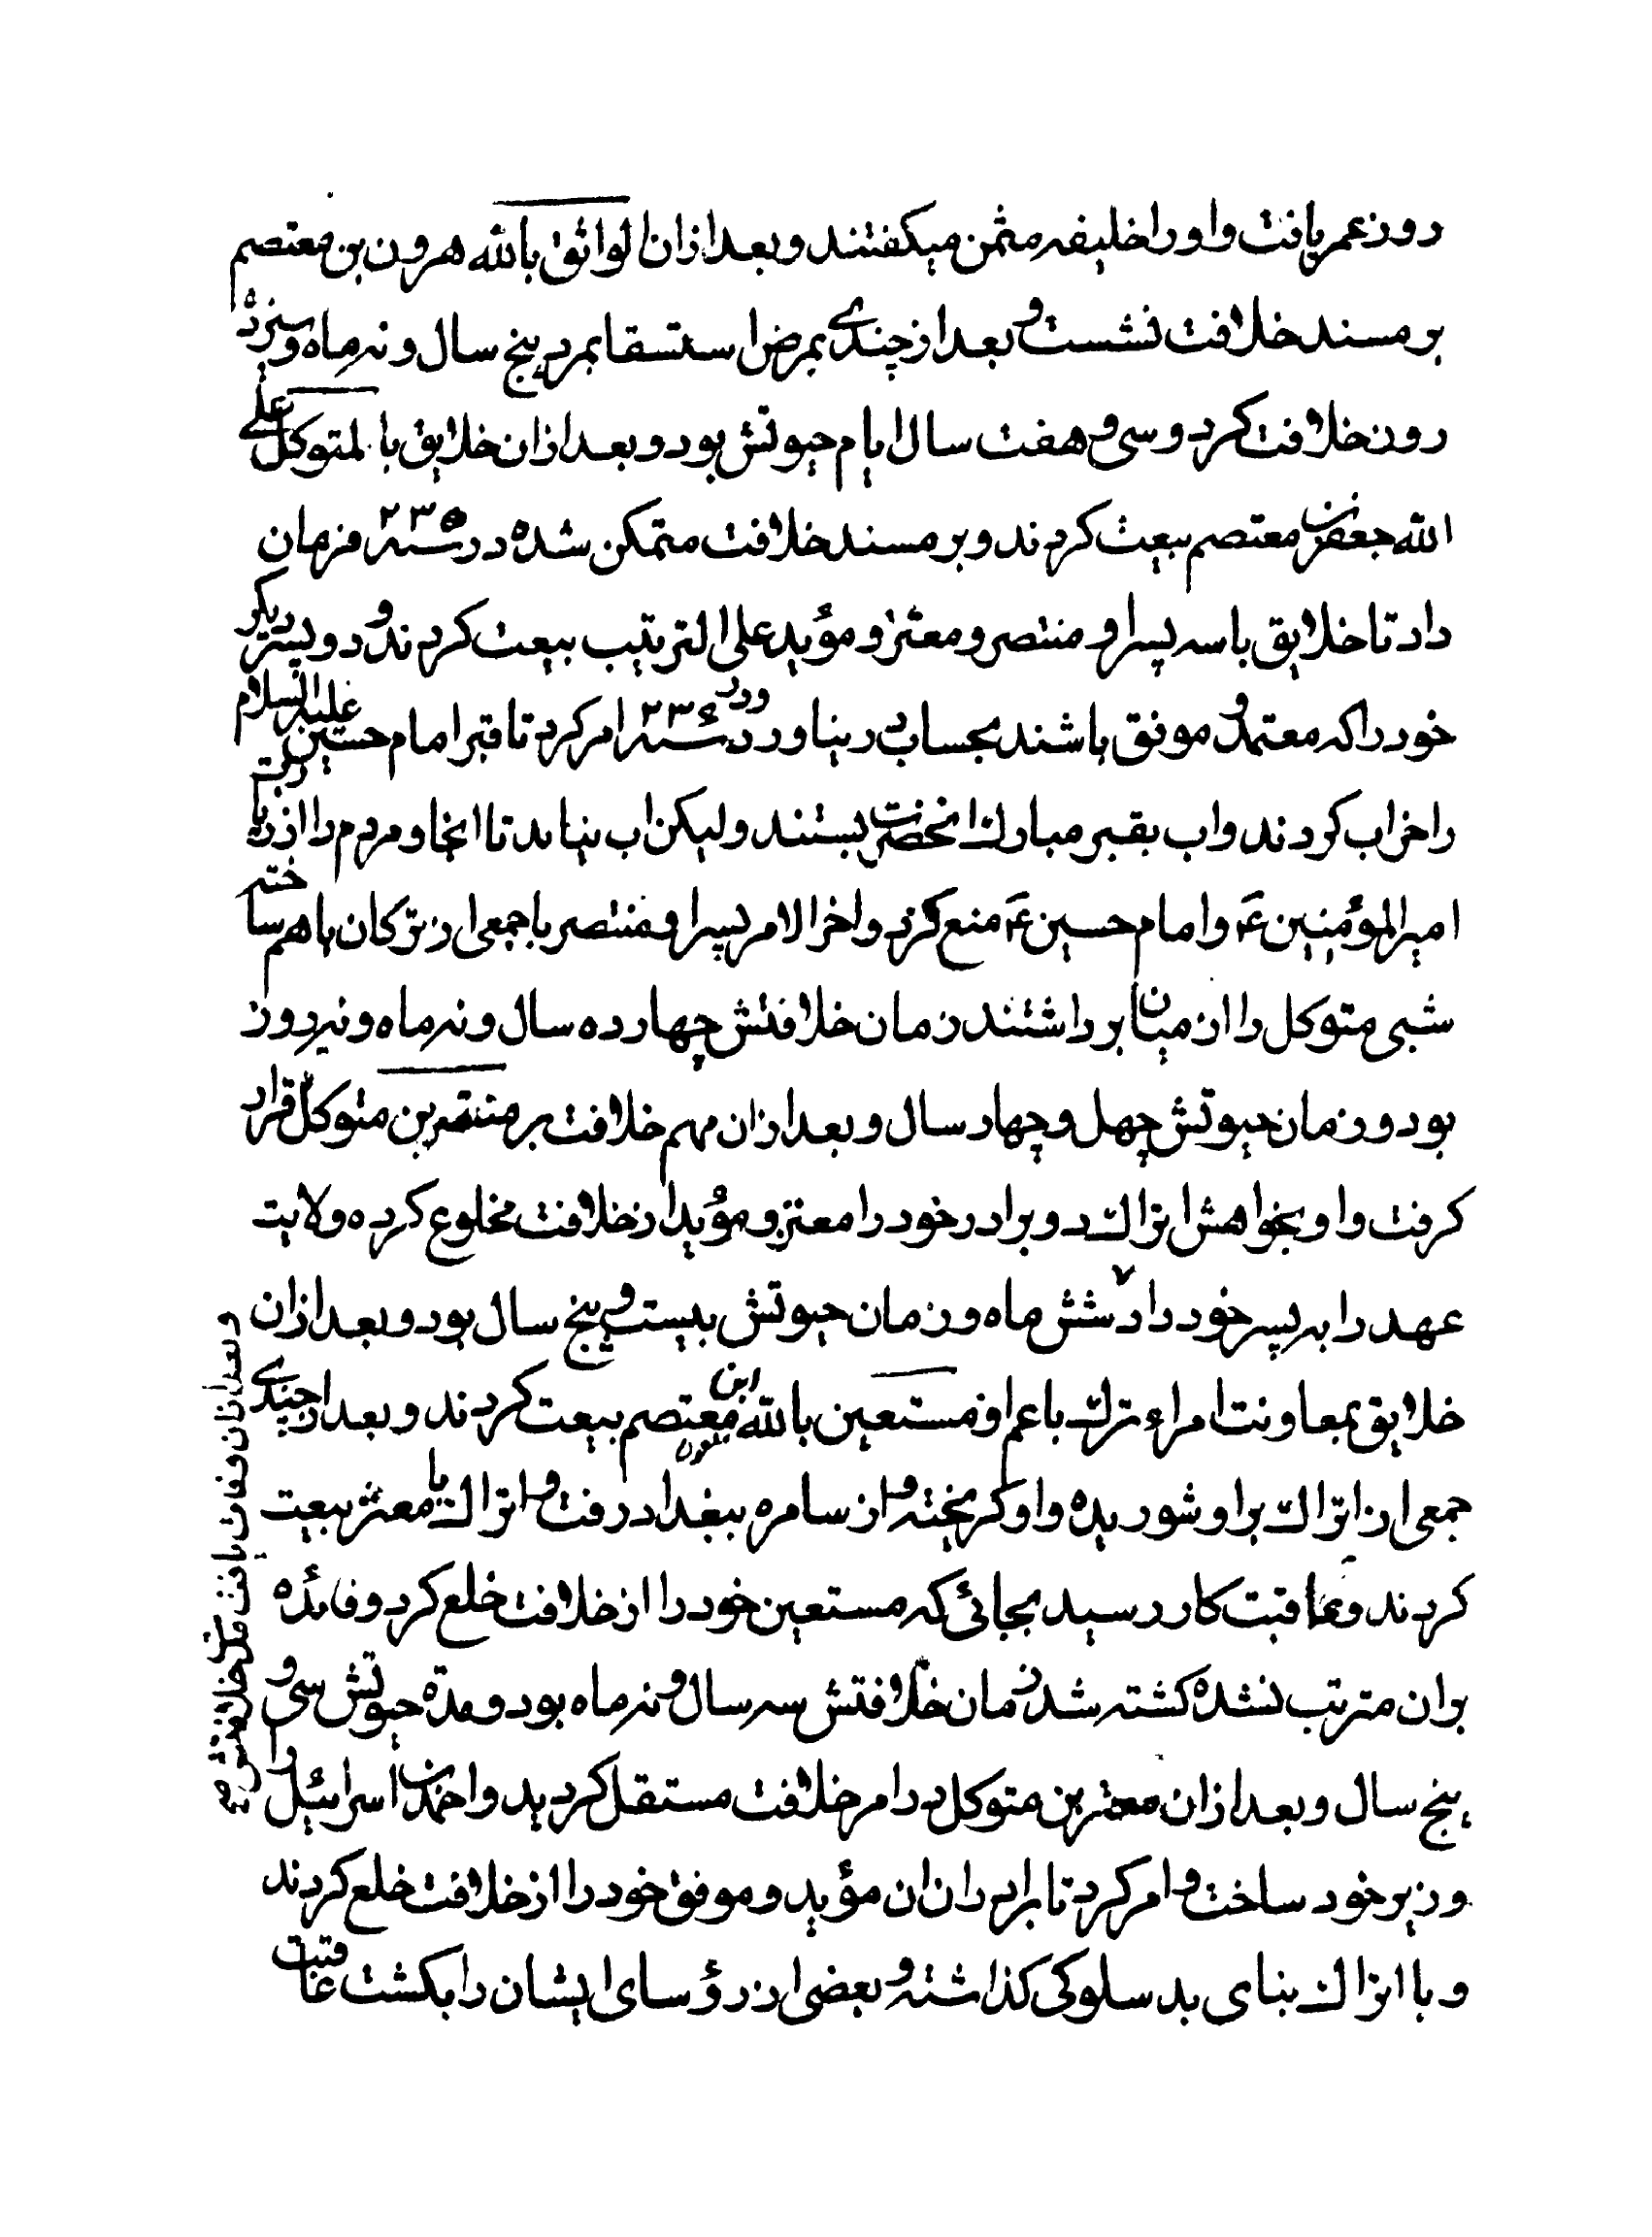 روز عمر یافت و او را خلیفه مثمن میکفتند و بعد ازان الواثق بالله هرون بن معتصم
بر مسند خلافت نشست و بعد از چندی بمرض استسقا بمرد پنج سال و نه ماه و سیزده
روز خلافت کرد و سی و هفت سال ایام حیوتش بود و بعد ازان خلایق با لمتوکل علی
الله جعفر بن معتصم بیعت کردند و بر مسند خلافت متمکن شده در سنه ٢٣۵ فرمان
داد تا خلایق با سه پسر او منتصر و معتز و مؤید علی الترتیب بیعت کردند و دو پسر دیکر
خود را که معتمد و موفق باشند بحسابی در نیاورد و در سنه ٢٣۶ امر کرد تا قبر امام حسین علیه السلام
را خراب کردند و اب بقبر مبارک انحضرت بستند ولیکن اب نیامد تا انجا و مردم را از زیارت
امیرالمؤمنین ع و امام حسین ع منع کرد و اخر الامر پسر او منتصر با جمعی از ترکان باهم ساخته
شبی متوکل را از میان برداشتند زمان خلافتش چهارده سال و نه ماه و نه روز
بود و زمان حیوتش چهل و چهار سال و بعد ازان مهم خلافت بر منتصر بن متوکل قرار
کرفت و او بخواهش اتراک دو برادر خود را معتز و مؤید از خلافت مخلوع کرده ولایت
عهد را به پسر خود داد شش ماه و زمان حیوتش بیست و پنج سال بود و بعد ازان
خلایق بمعاونت امراء ترک با عم او مستعین بالله ابن معتصم بیعت کردند و بعد از چندی
جمعی از اتراک بر او شوریده و او کریخته و از سامره ببغداد رفت و اتراک با معتز بیعت
کردند و عاقبت کار رسید بجائی که مستعین خود را از خلافت خلع کرد و فائده
بران مترتب نشده کشته شد زمان خلافتش سه سال و نه ماه بود و مدة حیوتش سی و
پنج سال و بعد ازان معتز بن متوکل در امر خلافت مستقل کردید و احمد بن اسرائیل را
وزیر خود ساخت و امر کرد تا برادران ان مؤید و موفق خود را از خلافت خلع کردند
و با اتراک بنای بد سلوکی کذاشته و بعضی از رؤسای ایشان را بکشت عاقبت
و بعد ازان وفات یافت مدت خلافتش